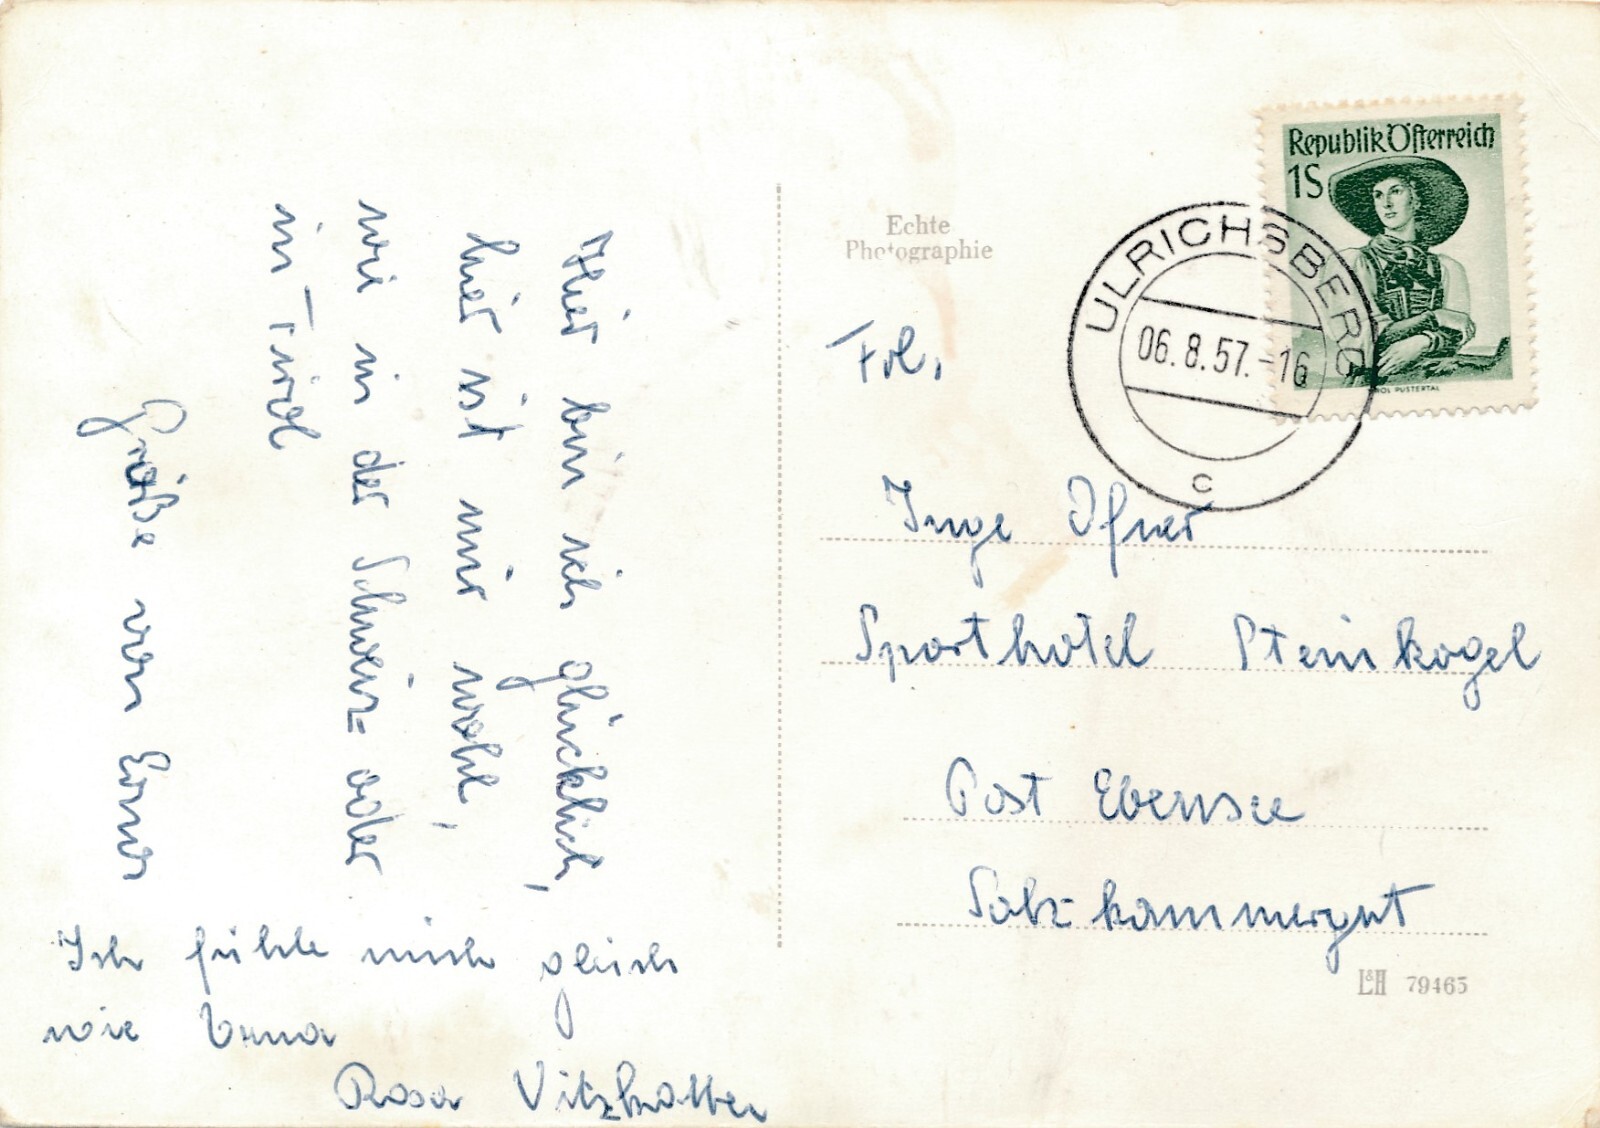 Hier bin ich glücklich,
hier ist mir wohl,
wie in der Schweiz oder
in Tirol
Grüße von Erna
Ich fühle mich gleich
wie Erna
Rosa
Echte
Photographie
Republik Österreich
1S
TIROL PUSTERTAL
ULRICHSBERG
06.8.57.-16
c
Frl.
Inge Ofner
Sporthotel Steinkogel
Post Ebensee
Salzkammergut
L&H 79465